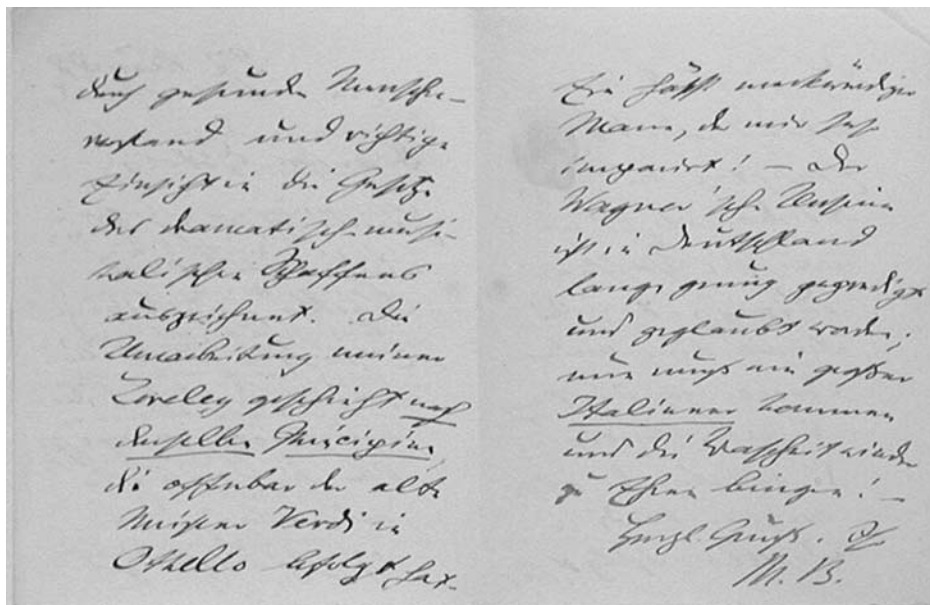 durch gesunden Menschen-
verstand und richtige
Einsicht in die Gesetze
des dramatisch-musi-
kalischen Schaffens
auszeichnet. Die
Umarbeitung meiner
Loreley geschieht nach
denselben Principien,
die offenbar der alte
Meister Verdi in
Othello befolgt hat.
Ein höchst merkwürdiger
Mann, der mir sehr
imponirt! – Der
Wagner'sche Unsinn
ist in Deutschland
lange genug gepredigt
und geglaubt worden;
nun muß ein großer
Italiener kommen
und die Wahrheit wieder
zu Ehren bringen! –
Herzl. Gruß.
M. B.